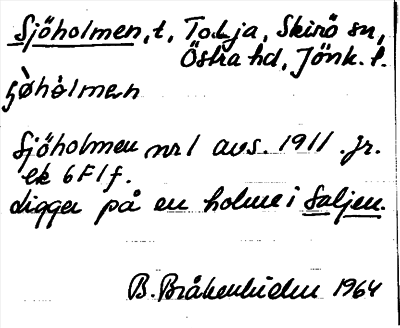 Sjöholmen, t, Torja, Skirö sn,
Östra hd, Jönk. l.
Sjöholmen nr 1 avs. 1911. Jr.
ek 6F1f.
Ligger på en holme i Saljen.
B. Bråkenhielm 1964